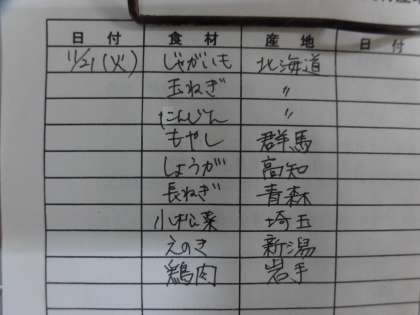 日付 食材 産地 日付
11/21(火) じゃがいも 北海道
玉ねぎ 〃
にんじん 〃
もやし 群馬
しょうが 高知
長ねぎ 青森
小松菜 埼玉
えのき 新潟
鶏肉 岩手